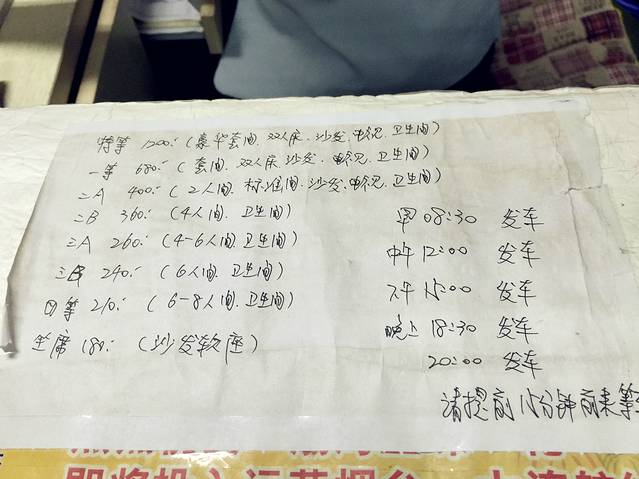 特等 1200.- (豪华套间. 双人床. 沙发. 电视. 卫生间)
一等 680.- (套间. 双人床 沙发. 电视. 卫生间)
二A 400.- (2人间. 标准间. 沙发. 电视. 卫生间)
二B 360.- (4人间. 卫生间)
三A 260.- (4-6人间. 卫生间)
三B 240.- (6人间. 卫生间)
四等 210.- (6-8人间. 卫生间)
坐席 180.- (沙发软座)
早 08:30 发车
中午 12:00 发车
下午 15:00 发车
晚上 18:30 发车
20:00 发车
请提前 分钟前来等
即将投入运营烟台